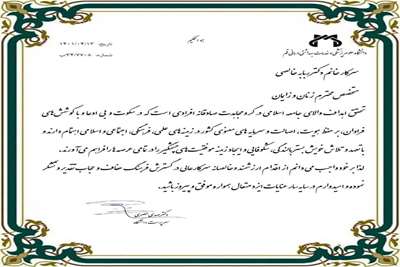 بسمه تعالی
تاریخ: ۱۴۰۱/۰۴/۱۳
دانشگاه علوم پزشکی و خدمات بهداشتی درمانی قم
سرکار خانم دکتر ربابه خالصی
متخصص محترم زنان و زایمان
تحقق اهداف والای جامعه اسلامی در گرو مجاهدت صادقانه افرادی است که در سکوت و بی ادعا، با کوشش‌های
فراوان، بر حفظ هویت، اصالت و سرمایه های معنوی کشور در زمینه‌های علمی، فرهنگی، اجتماعی و اسلامی اهتمام دارند و
با تعهد و تلاش خویش بستر بالندگی، شکوفایی و ایجاد زمینه موفقیت‌های چشمگیر را در تمامی عرصه ها فراهم می آورند.
لذا بر خود واجب می دانم از اقدام ارزشمند و خالصانه سرکار عالی در گسترش فرهنگ عفاف و حجاب تقدیر و تشکر
نموده و امیدوارم در سایه سار عنایات ایزد متعال همواره موفق و پیروز باشید.
سرپرست دانشگاه